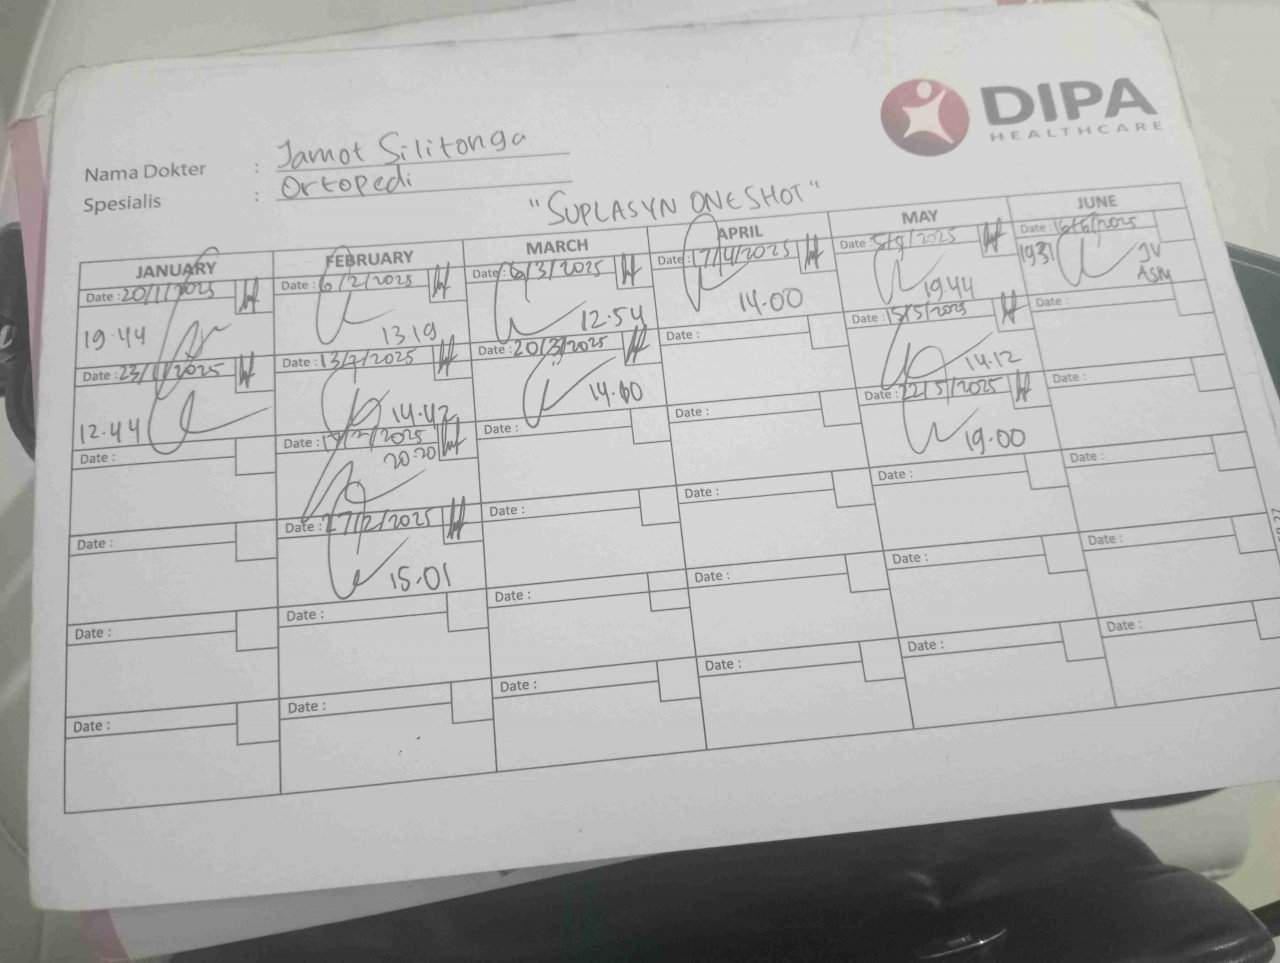 DIPA
HEALTHCARE
Nama Dokter : Jamot Silitonga
Spesialis : Ortopedi
"SUPLASYN ONE SHOT"
JANUARY FEBRUARY MARCH APRIL MAY JUNE
Date : 20/1/2025
19.44
Date : 23/1/2025
12.44
Date :
Date :
Date :
Date :
Date : 6/2/2025
13.19
Date : 13/2/2025
14.42
Date : /2/2025
20.20
Date : 27/2/2025
15.01
Date :
Date :
Date : 6/3/2025
12.54
Date : 20/3/2025
14.00
Date :
Date :
Date :
Date :
Date : 17/4/2025
14.00
Date :
Date :
Date :
Date :
Date :
Date : /2025
19.44
Date : 15/5/2025
14.12
Date : 22/5/2025
19.00
Date :
Date :
Date :
Date : 16/6/2025
19.31
JV
ASM
Date :
Date :
Date :
Date :
Date :